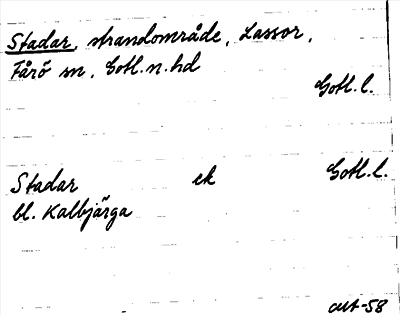 Stadar, strandområde, Lassor,
Fårö sn, Gotl. n. hd
Gotl. l.
Stadar ek Gotl. l.
bl. Kalbjärga
aut-58